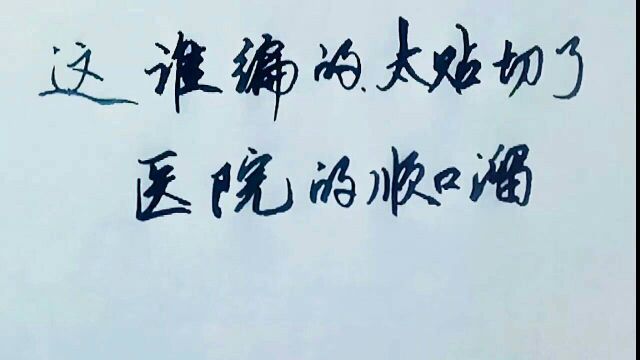 这谁编的太贴切了
医院的顺口溜